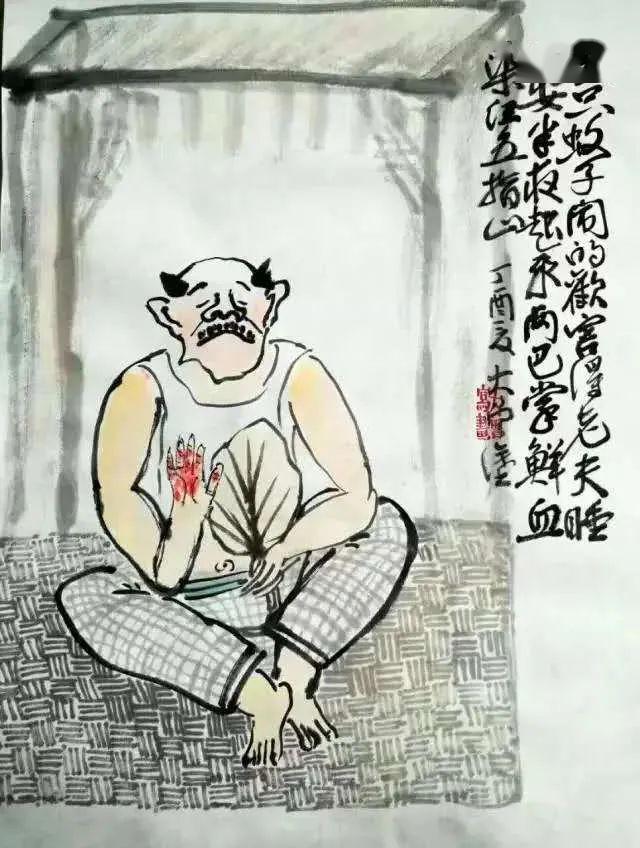 只蚊子闹的歡害得老夫睡
安半夜起来两巴掌鲜血
染红五指山 丁酉夏 大